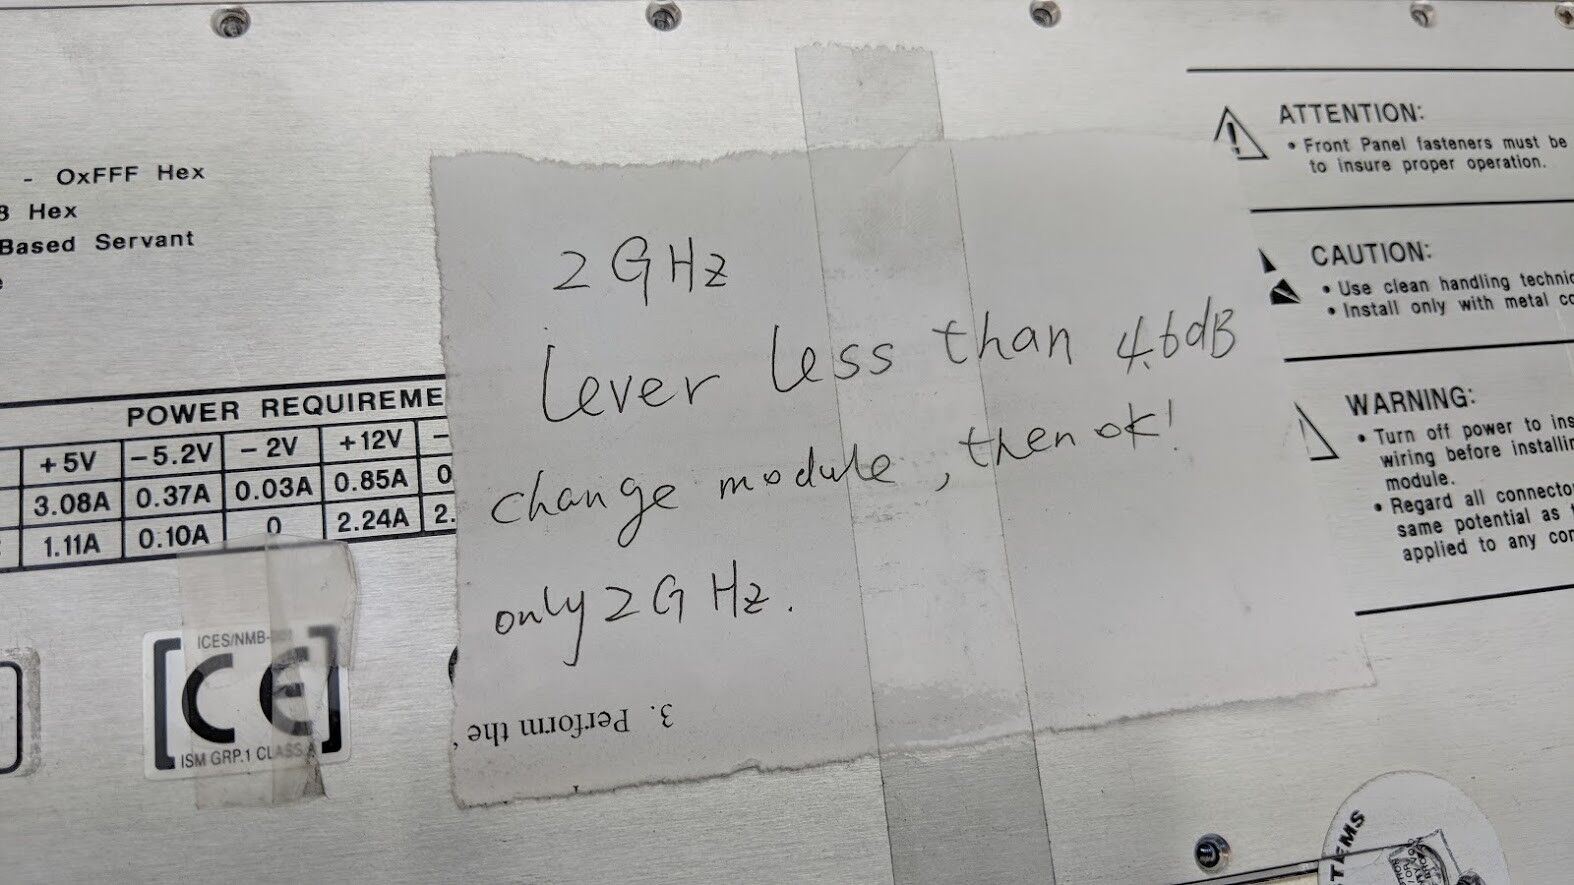 - OxFFF Hex
8 Hex
Based Servant
POWER REQUIREME
+5V -5.2V -2V +12V -
3.08A 0.37A 0.03A 0.85A 0
1.11A 0.10A 0 2.24A 2.
ICES/NMB-001
CE
ISM GRP.1 CLASS A
2 GHz
lever less than 4.6dB
change module, then ok!
only 2 GHz.
3. Perform the
ATTENTION:
• Front Panel fasteners must be
to insure proper operation.
CAUTION:
• Use clean handling techni
• Install only with metal co
WARNING:
• Turn off power to ins
wiring before installin
module.
• Regard all connecto
same potential as
applied to any con
TEMS